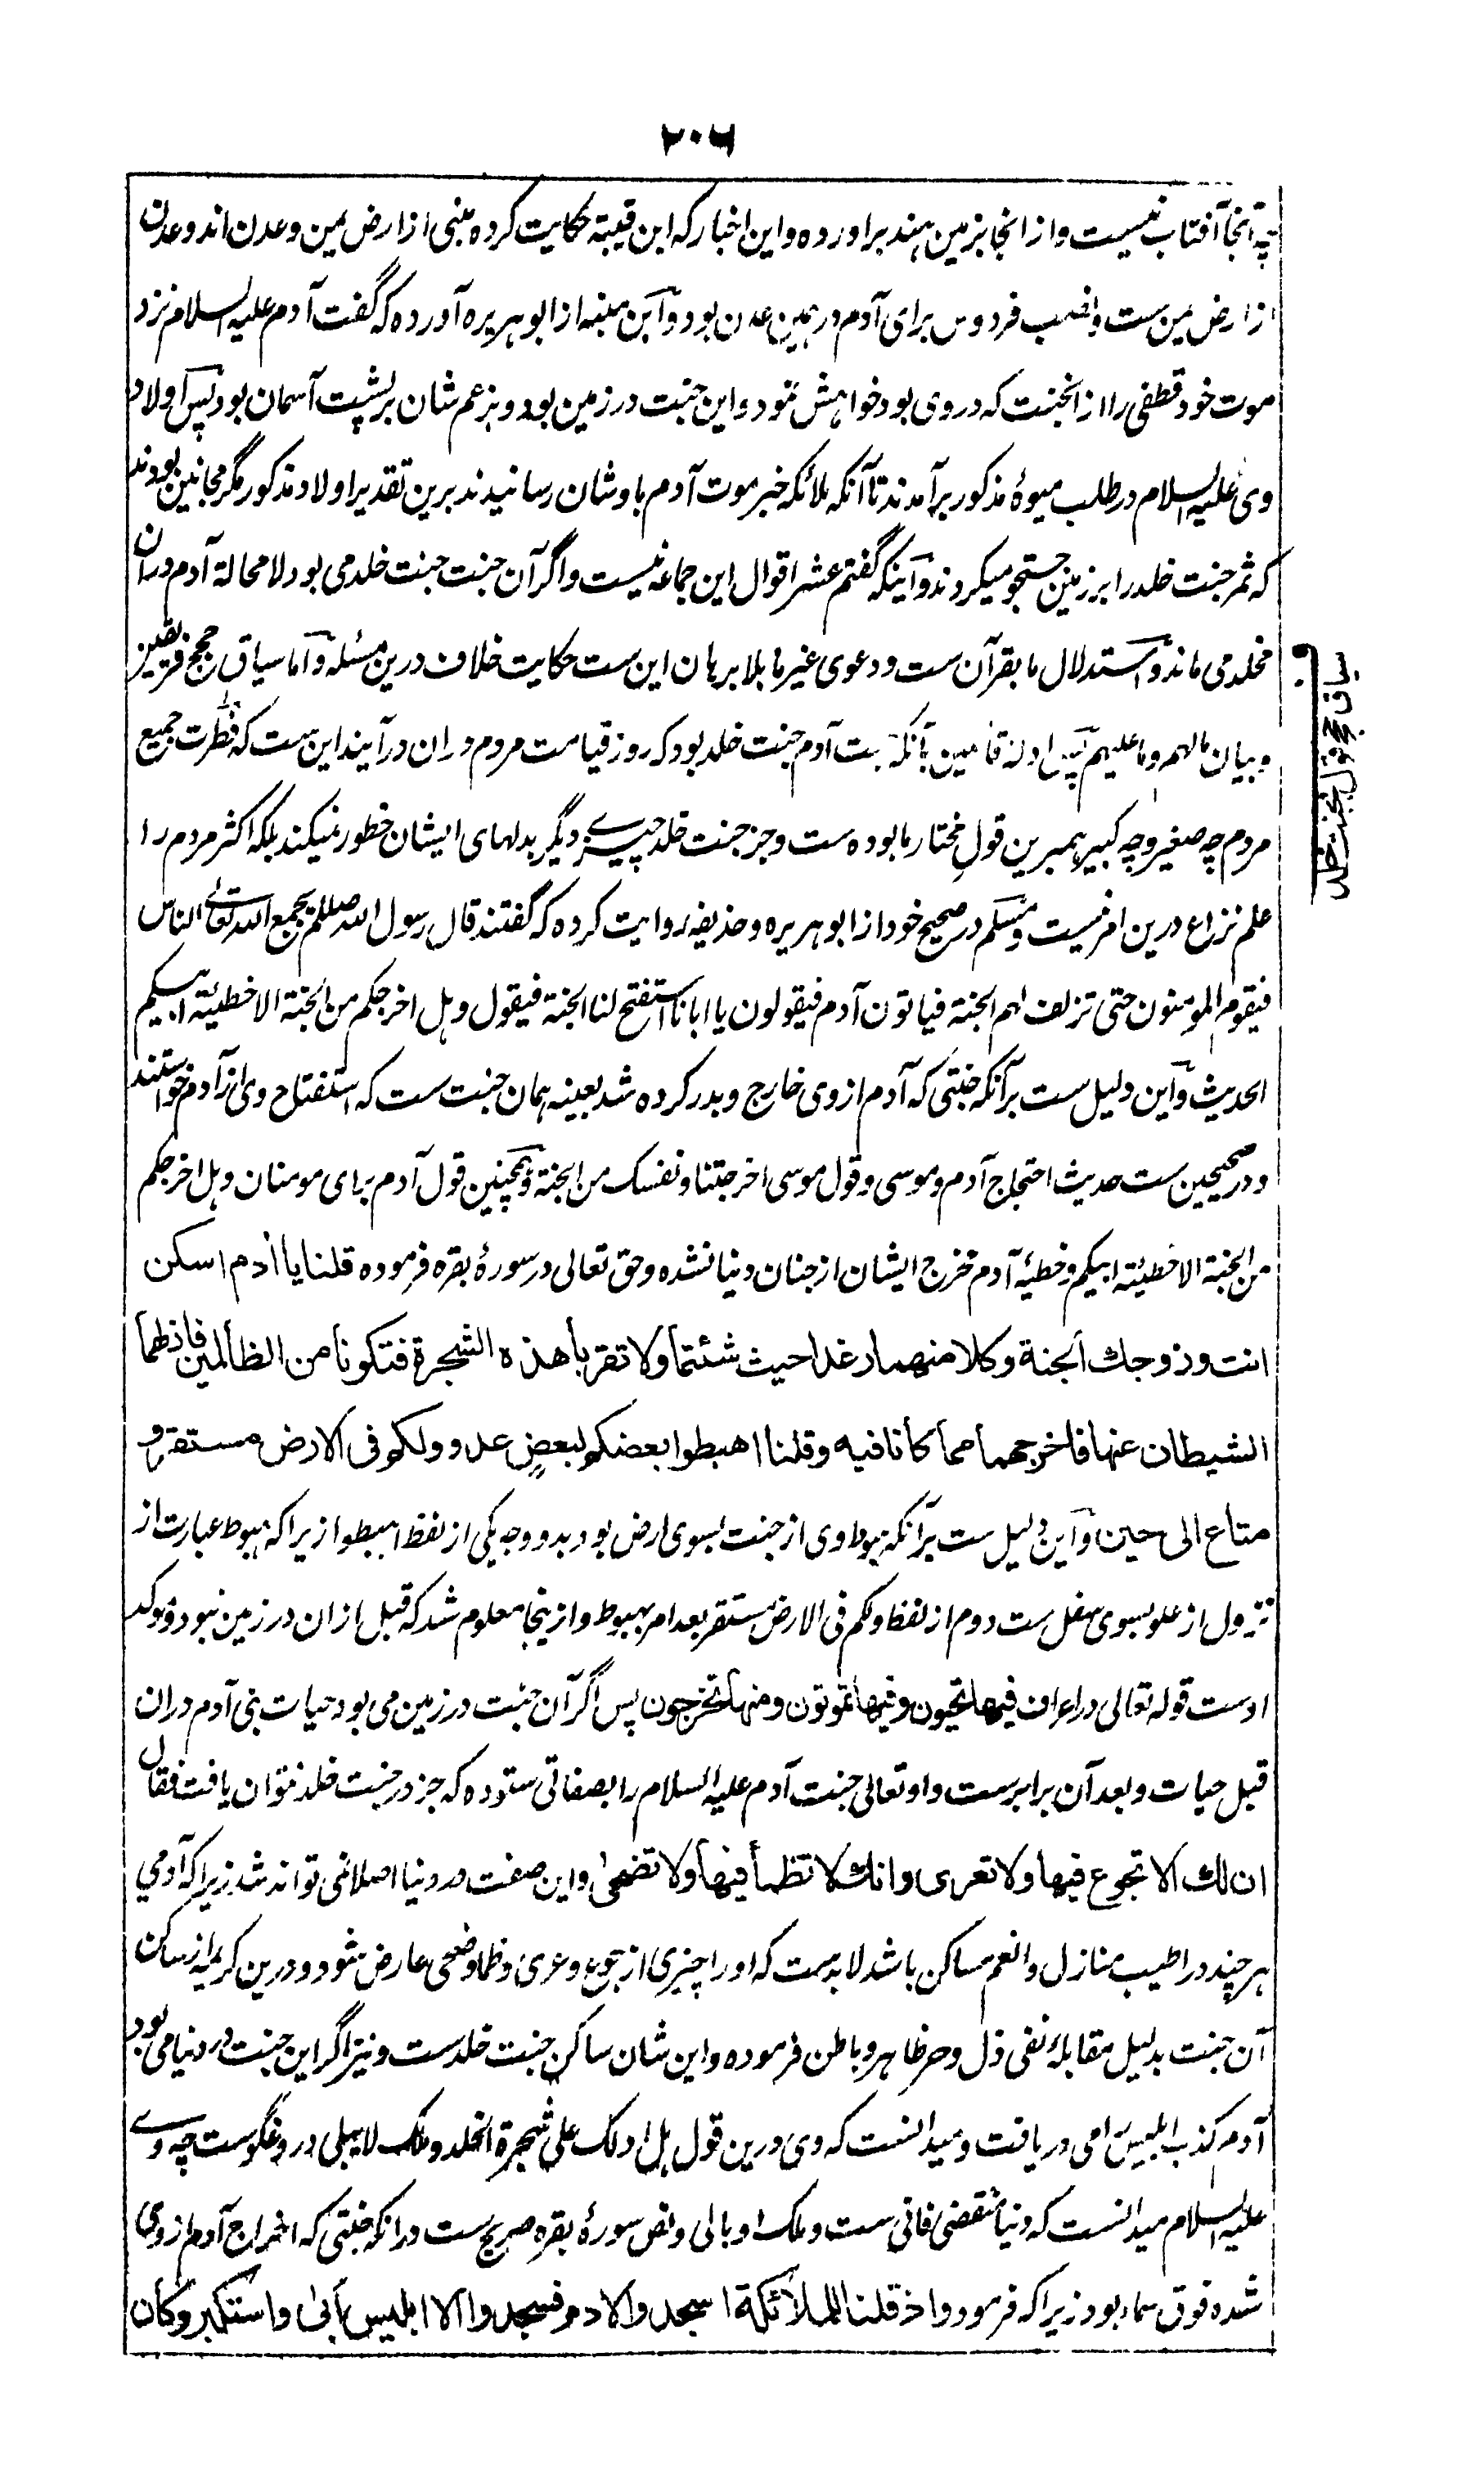 ٢٠٦
چه آنجا آفتاب نیست و از انجا بزمین هند براورده و این اخبار که ابن قتیبة حکایت کرده مبنی از ارض یمن و عدن اند و عدن
از ارض یمن ست و نصب فردوس برای آدم در همین عدن بود و ابن منبه از ابو هریره آورده که گفت آدم علیه السلام نزد
موت خود قطفی را از انجنت که در وی بود خواهش نمود و این جنت در زمین بود و بزعم شان بر پشت آسمان بود پس اولاد
وی علیه السلام در طلب میوۂ مذکور برآمدند تا آنکه ملائکه خبر موت آدم باوشان رسانیدند برین تقدیر اولاد مذکور مگر مجانین بودند
که ثمر جنت خلد را بر زمین جستجو میکردند و اینکه گفتم عشر اقوال این جماعه نیست و اگر آن جنت جنت خلد می بود لا محالة آدم دران
مخلد می ماند و استدلال ما بقرآن ست و دعوی غیر ما بلا برهان این ست حکایت خلاف درین مسئله و اما سیاق حجج فریقین
و بیان مالهم و ما علیهم پس ادلهٔ قائلین بآنکه جنت آدم جنت خلد بود که روز قیامت مردم دران درآیند این ست که فطرت جمیع
مردم چه صغیر و چه کبیر همبرین قول مختار ما بوده ست و جز جنت خلد چیزے دیگر بدلهای ایشان خطور نمیکند بلکه اکثر مردم را
علم نزاع درین امر نیست و مسلم در صحیح خود از ابو هریره و حذیفه روایت کرده که گفتند قال رسول الله صللم یجمع الله تعالے الناس
فیقوم المومنون حتی تزلف لهم الجنة فیاتون آدم فیقولون یا ابانا استفتح لنا الجنة فیقول و هل اخرجکم من الجنة الا خطیئة ابیکم
الحدیث و این دلیل ست برآنکه جنتی که آدم از وی خارج و بدر کرده شد بعینه همان جنت ست که استفتاح وی از آدم خواستند
و در صحیحین ست حدیث احتجاج آدم و موسی و قول موسی اخرجتنا و نفسک من الجنة و همچنین قول آدم برای مومنان و هل اخرجکم
من الجنة الا خطیئة ابیکم و خطیۂ آدم مخرج ایشان از جنان دنیا نشده و حق تعالی در سورۂ بقره فرموده قلنا یا آدم اسکن
انت وزوجك الجنة وکلا منهما رغدا حیث شئتما ولا تقربا هذه الشجرة فتکونا من الظالمین فازلهما
الشیطان عنها فاخرجهما مما کانا فیه وقلنا اهبطوا بعضکم لبعض عدو ولکم فی الارض مستقر و
متاع الی حین و این دلیل ست برآنکه هبوط وی از جنت بسوی ارض بود بدو وجه یکی از لفظ اهبطوا زیرا که هبوط عبارت از
نزول از علو بسوی سفل ست دوم از لفظ ولکم فی الارض مستقر بعد امر بهبوط و از ینجا معلوم شد که قبل از ان در زمین نبود و موکد
اوست قوله تعالی در اعراف فیها تحیون وفیها تموتون ومنها تخرجون پس اگر آن جنت در زمین می بود حیات بنی آدم دران
قبل حیات و بعد آن برابرست و او تعالی جنت آدم علیه السلام را بصفاتی ستوده که جز در جنت خلد نتوان یافت فقال
ان لك الا تجوع فیها ولا تعری وانك لا تظمأ فیها ولا تضحی و این صفت در دنیا اصلا نمی تواند شد زیرا که آدمی
هر چند در اطیب منازل و انعم مساکن باشد لابدست که او را چیزی از جوع و عری و ظما و ضحی عارض شود و درین کریمه از ساکن
آن جنت بدلیل مقابلۂ نفی ذل و حر ظاهر و باطن فرموده و این شان ساکن جنت خلدست و نیز اگر این جنت در دنیا می بود
آدم کذب ابلیس را می دریافت و میدانست که وی درین قول هل ادلک علی شجرة الخلد و ملک لا یبلی دروغگوست چه وے
علیه السلام میدانست که دنیا منقضی فانی ست و ملک او بالی و نص سورۂ بقره صریح ست درانکه جنتی که اخراج آدم از وی
شده فوق سماء بود زیرا که فرمود واذ قلنا للملائکة اسجدوا لادم فسجدوا الا ابلیس أبی واستکبر وکان
سیاق حجج قول بجنت خلد